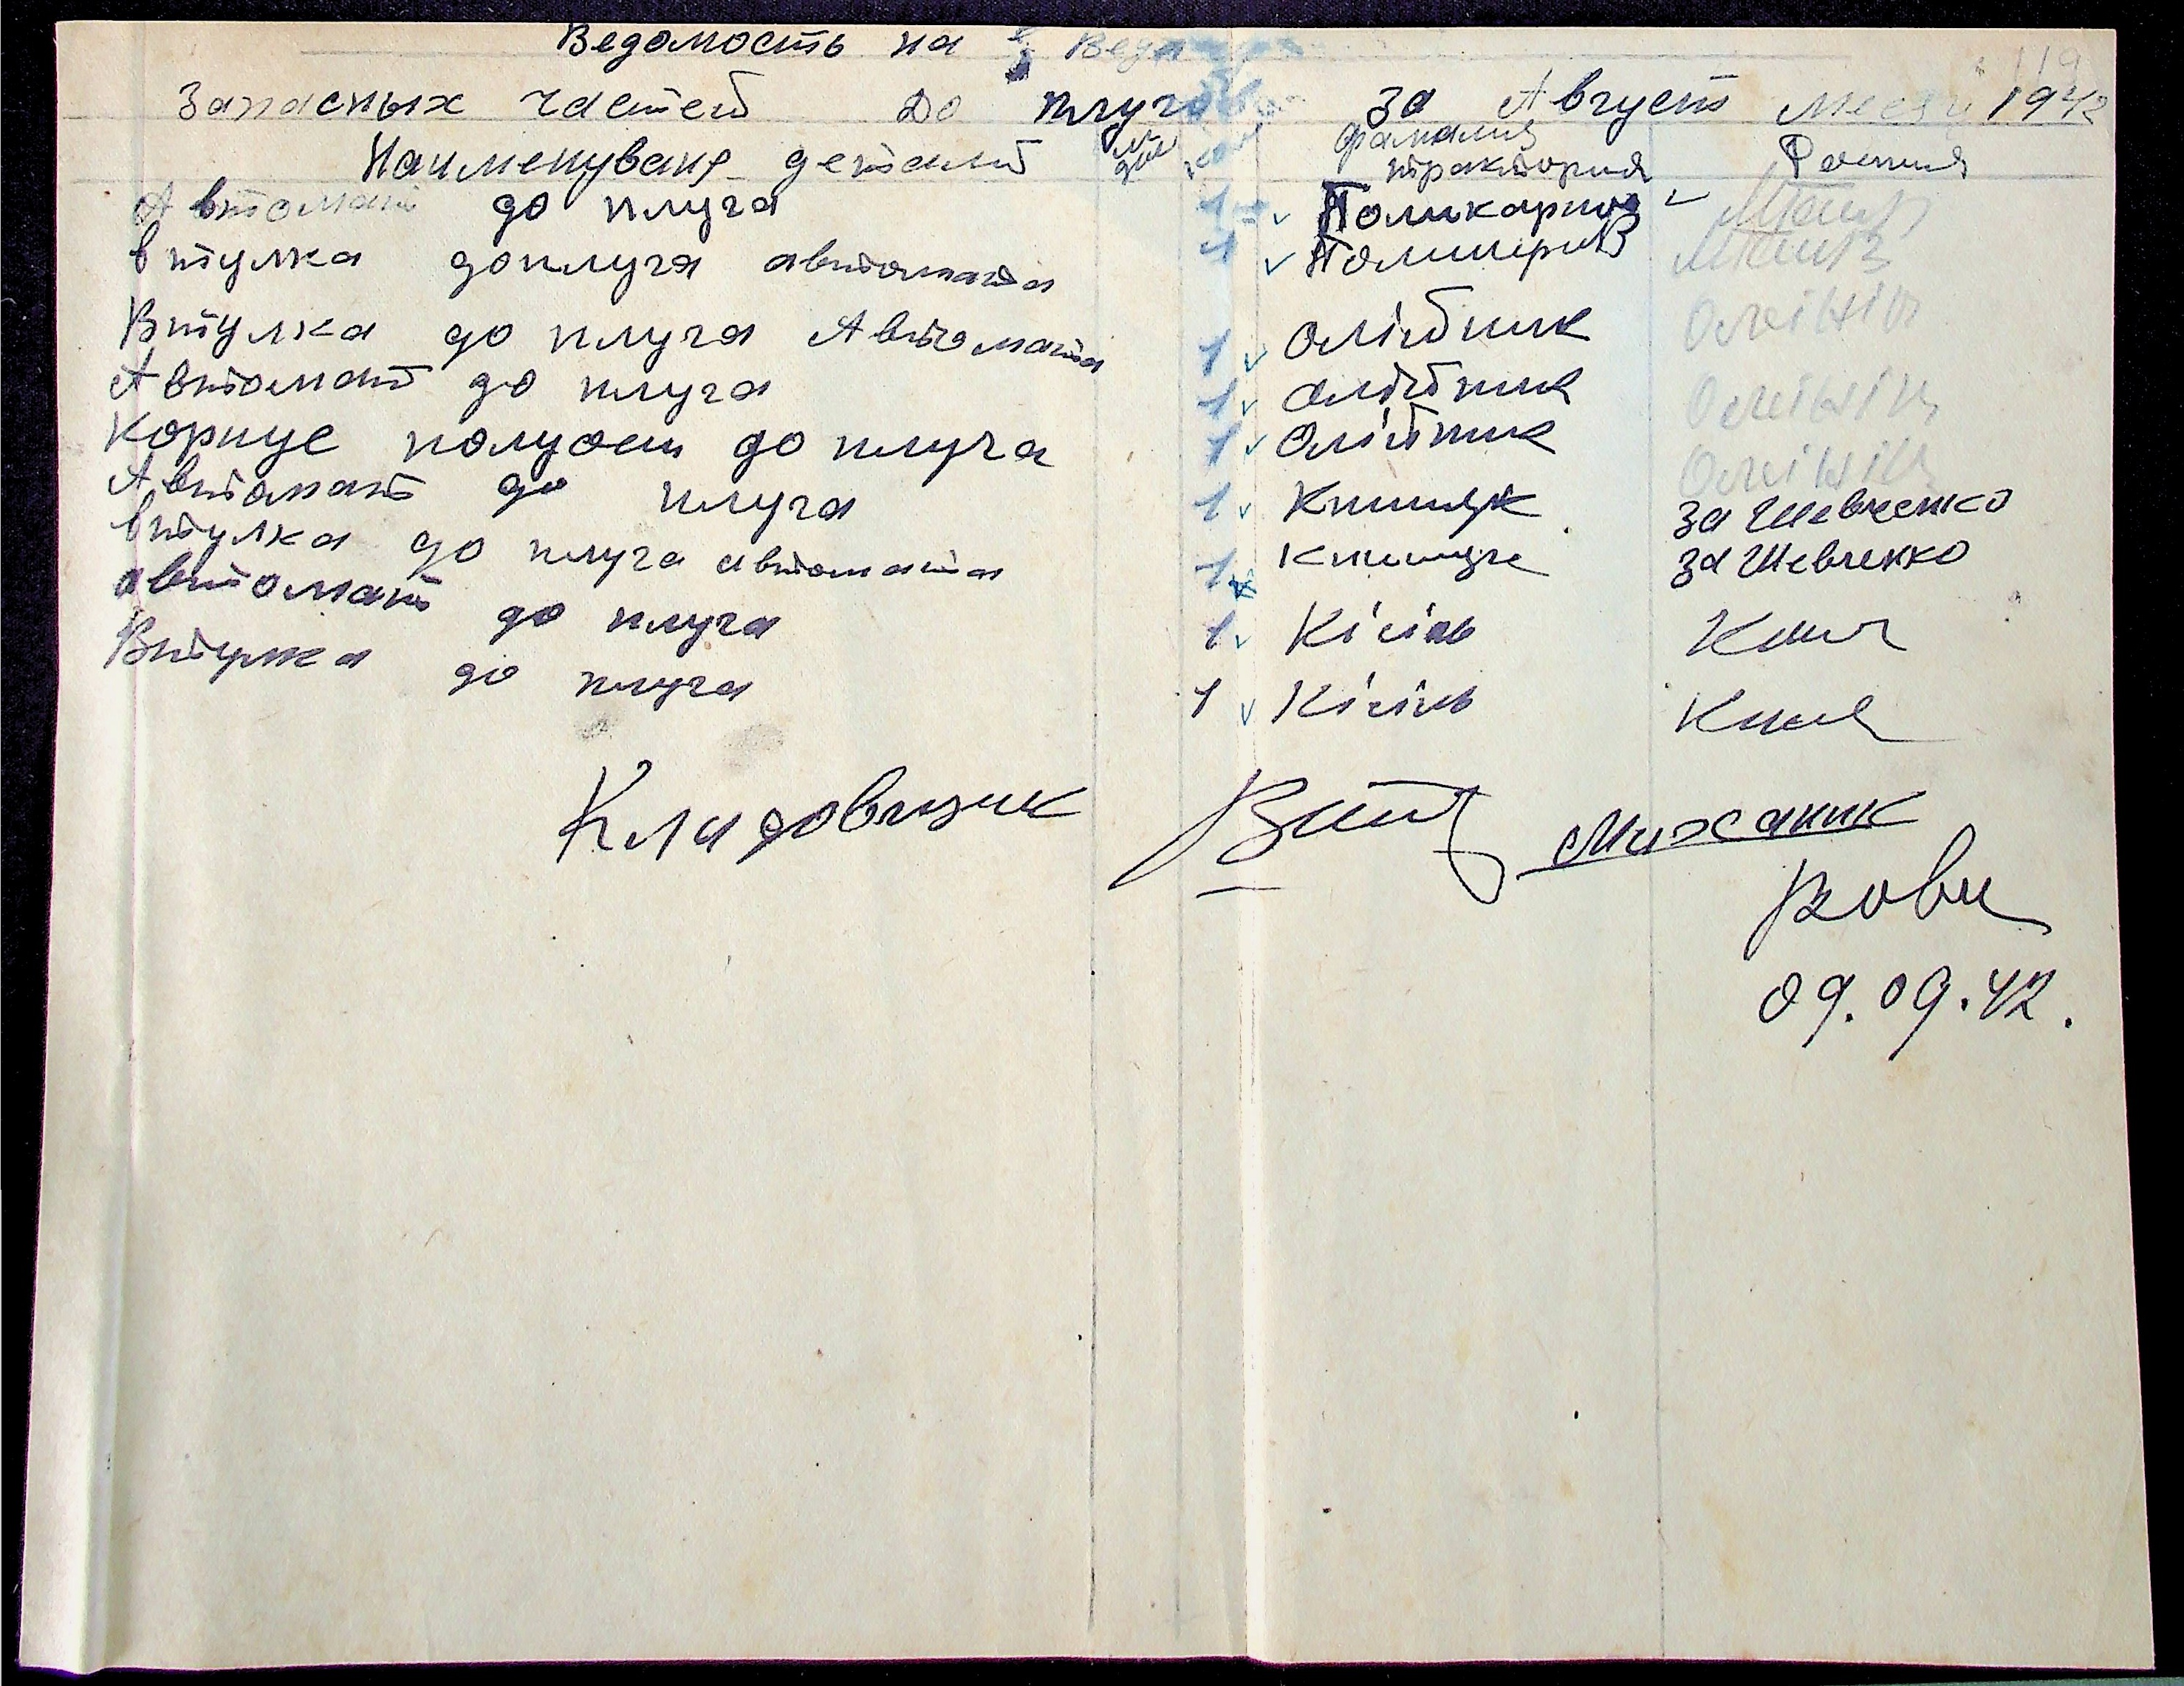 119
Ведомость на
Запасных частей до плугов за Август месяц 1942
Наименуваня деталей фамилия тракториа Роспия
Автомат до плуга 1 Поликарпов
втулка доплуга автомата 1
Втулка до плуга Автомата 1 Олійник
Автомат до плуга 1 Олійник
Корпус полуоси до плуга 1 Олійник
Автомат до плуга 1 Книшук за Шевченко
втулка до плуга автомата 1 Книшук за Шевченко
автомат до плуга 1 Кісіль
Втулка до плуга 1 Кісіль
Кладовщик Миханик
09.09.42.